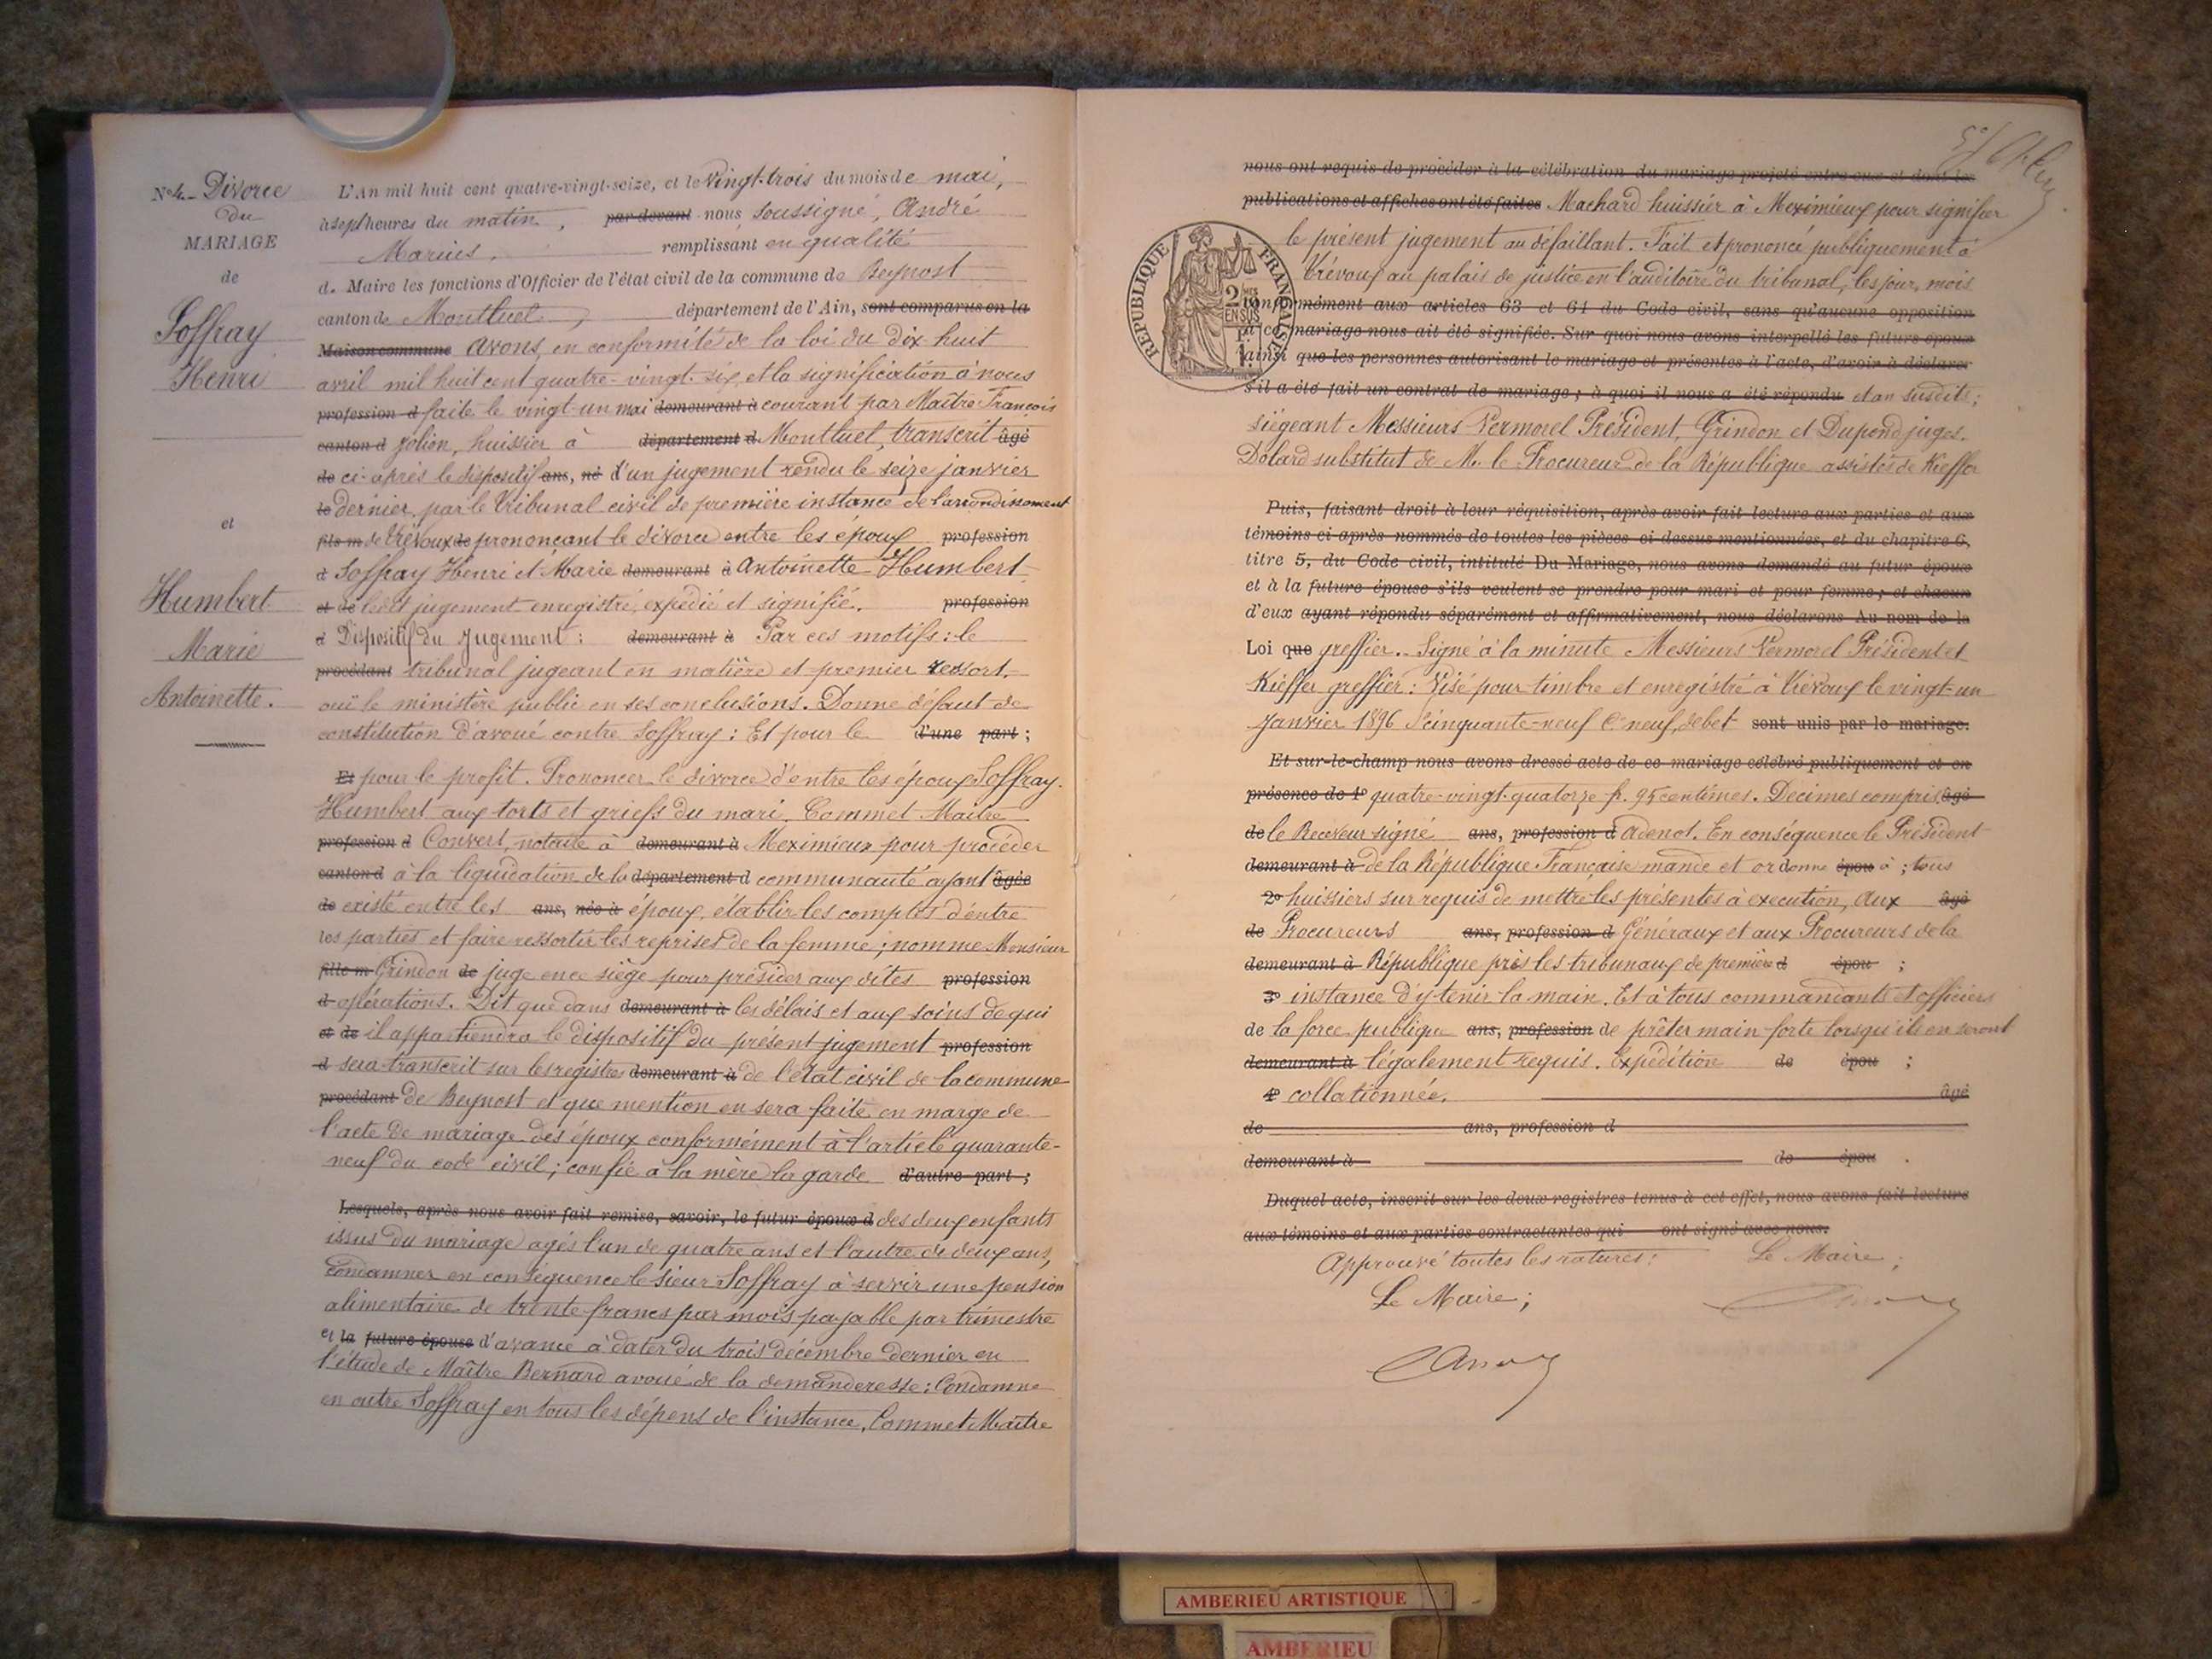 N° 4. Divorce
du
MARIAGE
de
Soffray
Henri
et
Humbert
Marie
Antoinette.
L'An mil huit cent quatre-vingt-seize, et le Vingt-trois du mois de mai,
à sept heures du matin, par devant nous soussigné, André
Marius, remplissant en qualité
de Maire les fonctions d'Officier de l'état civil de la commune de Beynost
canton de Montluel, département de l'Ain, sont comparus en la
Maison commune avons, en conformité de la loi du dix huit
avril mil huit cent quatre-vingt-six, et la signification à nous
profession d faite le vingt-un mai demeurant à courant par Maître François
canton d Jolion, huissier à département d Montluel, transcrit âgé
de ci-après le dispositif ans, né d'un jugement rendu le seize janvier
le dernier, par le tribunal civil de première instance de l'arrondissement
fils m de Trévoux de prononçant le divorce entre les époux profession
d Soffray Henri et Marie demeurant à Antoinette Humbert
et de ledit jugement enregistré, expédié et signifié. profession
d Dispositif du Jugement : demeurant à Par ces motifs : le
procédant tribunal jugeant en matière et premier ressort,
ouï le ministère public en ses conclusions. Donne défaut de
constitution d'avoué contre Soffray : Et pour le d'une part ;
Et pour le profit. Prononcer le divorce d'entre les époux Soffray-
Humbert aux torts et griefs du mari. Commet Maître
profession d Convert, notaire à demeurant à Meximieux pour procéder
canton d à la liquidation de la département d communauté ayant âgée
de existé entre les ans, née à époux, établir les comptes d'entre
les parties et faire ressortir les reprises de la femme ; nomme Monsieur
fille m Grindon de juge en ce siège pour présider aux dites profession
d opérations. Dit que dans demeurant à les délais et aux soins de qui
et de il appartiendra le dispositif du présent jugement profession
d sera transcrit sur les registres demeurant à de l'état civil de la commune
procédant de Beynost et que mention en sera faite en marge de
l'acte de mariage des époux conformément à l'article quarante-
neuf du code civil ; confie à la mère la garde d'autre part ;
Lesquels, après nous avoir fait remise, savoir, le futur époux d des deux enfants
issus du mariage agés l'un de quatre ans et l'autre de deux ans,
condamner en conséquence le sieur Soffray à servir une pension
alimentaire de trente francs par mois payable par trimestre
et la future épouse d'avance à dater du trois décembre dernier en
l'étude de Maître Bernard avoué de la demanderesse : Condamne
en outre Soffray en tous les dépens de l'instance, Commet Maître
nous ont requis de procéder à la célébration du mariage projeté entre eux et dont les
publications et affiches ont été faites Machard huissier à Meximieux pour signifier
le présent jugement au défaillant. Fait et prononcé publiquement à
Trévoux au palais de justice en l'auditoire du tribunal, les jour, mois
RÉPUBLIQUE FRANÇAISE
2 MES
EN SUS
conformément aux articles 63 et 64 du Code civil, sans qu'aucune opposition
ce mariage nous ait été signifiée. Sur quoi nous avons interpellé les futurs époux
ainsi que les personnes autorisant le mariage et présentes à l'acte, d'avoir à déclarer
s'il a été fait un contrat de mariage ; à quoi il nous a été répondu et an susdits ;
siégeant Messieurs Vermorel Président, Grindon et Dupond juges.
Dolard substitut de M. le Procureur de la République assistés de Kieffer
Puis, faisant droit à leur réquisition, après avoir fait lecture aux parties et aux
témoins ci-après nommés de toutes les pièces ci-dessus mentionnées, et du chapitre 6,
titre 5, du Code civil, intitulé Du Mariage, nous avons demandé au futur époux
et à la future épouse s'ils veulent se prendre pour mari et pour femme ; et chacun
d'eux ayant répondu séparément et affirmativement, nous déclarons Au nom de la
Loi que greffier. Signé à la minute Messieurs Vermorel Président et
Kieffer greffier : Visé pour timbre et enregistré à Trévoux le vingt-un
Janvier 1896 cinquante-neuf C. neuf, debet sont unis par le mariage.
Et sur-le-champ nous avons dressé acte de ce mariage célébré publiquement et en
présence de 1° quatre-vingt-quatorze fr. 95 centimes. Décimes compris âgé
de le Receveur signé ans, profession d Adenot. En conséquence le Président
demeurant à de la République Française mande et ordonne épou à ; tous
2° huissiers sur requis de mettre les présentes à execution, Aux âgé
de Procureurs ans, profession d Généraux et aux Procureurs de la
demeurant à République près les tribunaux de première d épou ;
3° instance d'y tenir la main. Et à tous commandants et officiers
de la force publique ans, profession de prêter main-forte lorsqu'ils en seront
demeurant à légalement requis. Expédition de épou ;
4° collationnée. âgé
de ans, profession d
demeurant à de épou .
Duquel acte, inscrit sur les deux registres tenus à cet effet, nous avons fait lecture
aux témoins et aux parties contractantes qui ont signé avec nous.
Approuvé toutes les ratures : Le Maire ;
Le Maire ;
AMBERIEU ARTISTIQUE
AMBERIEU